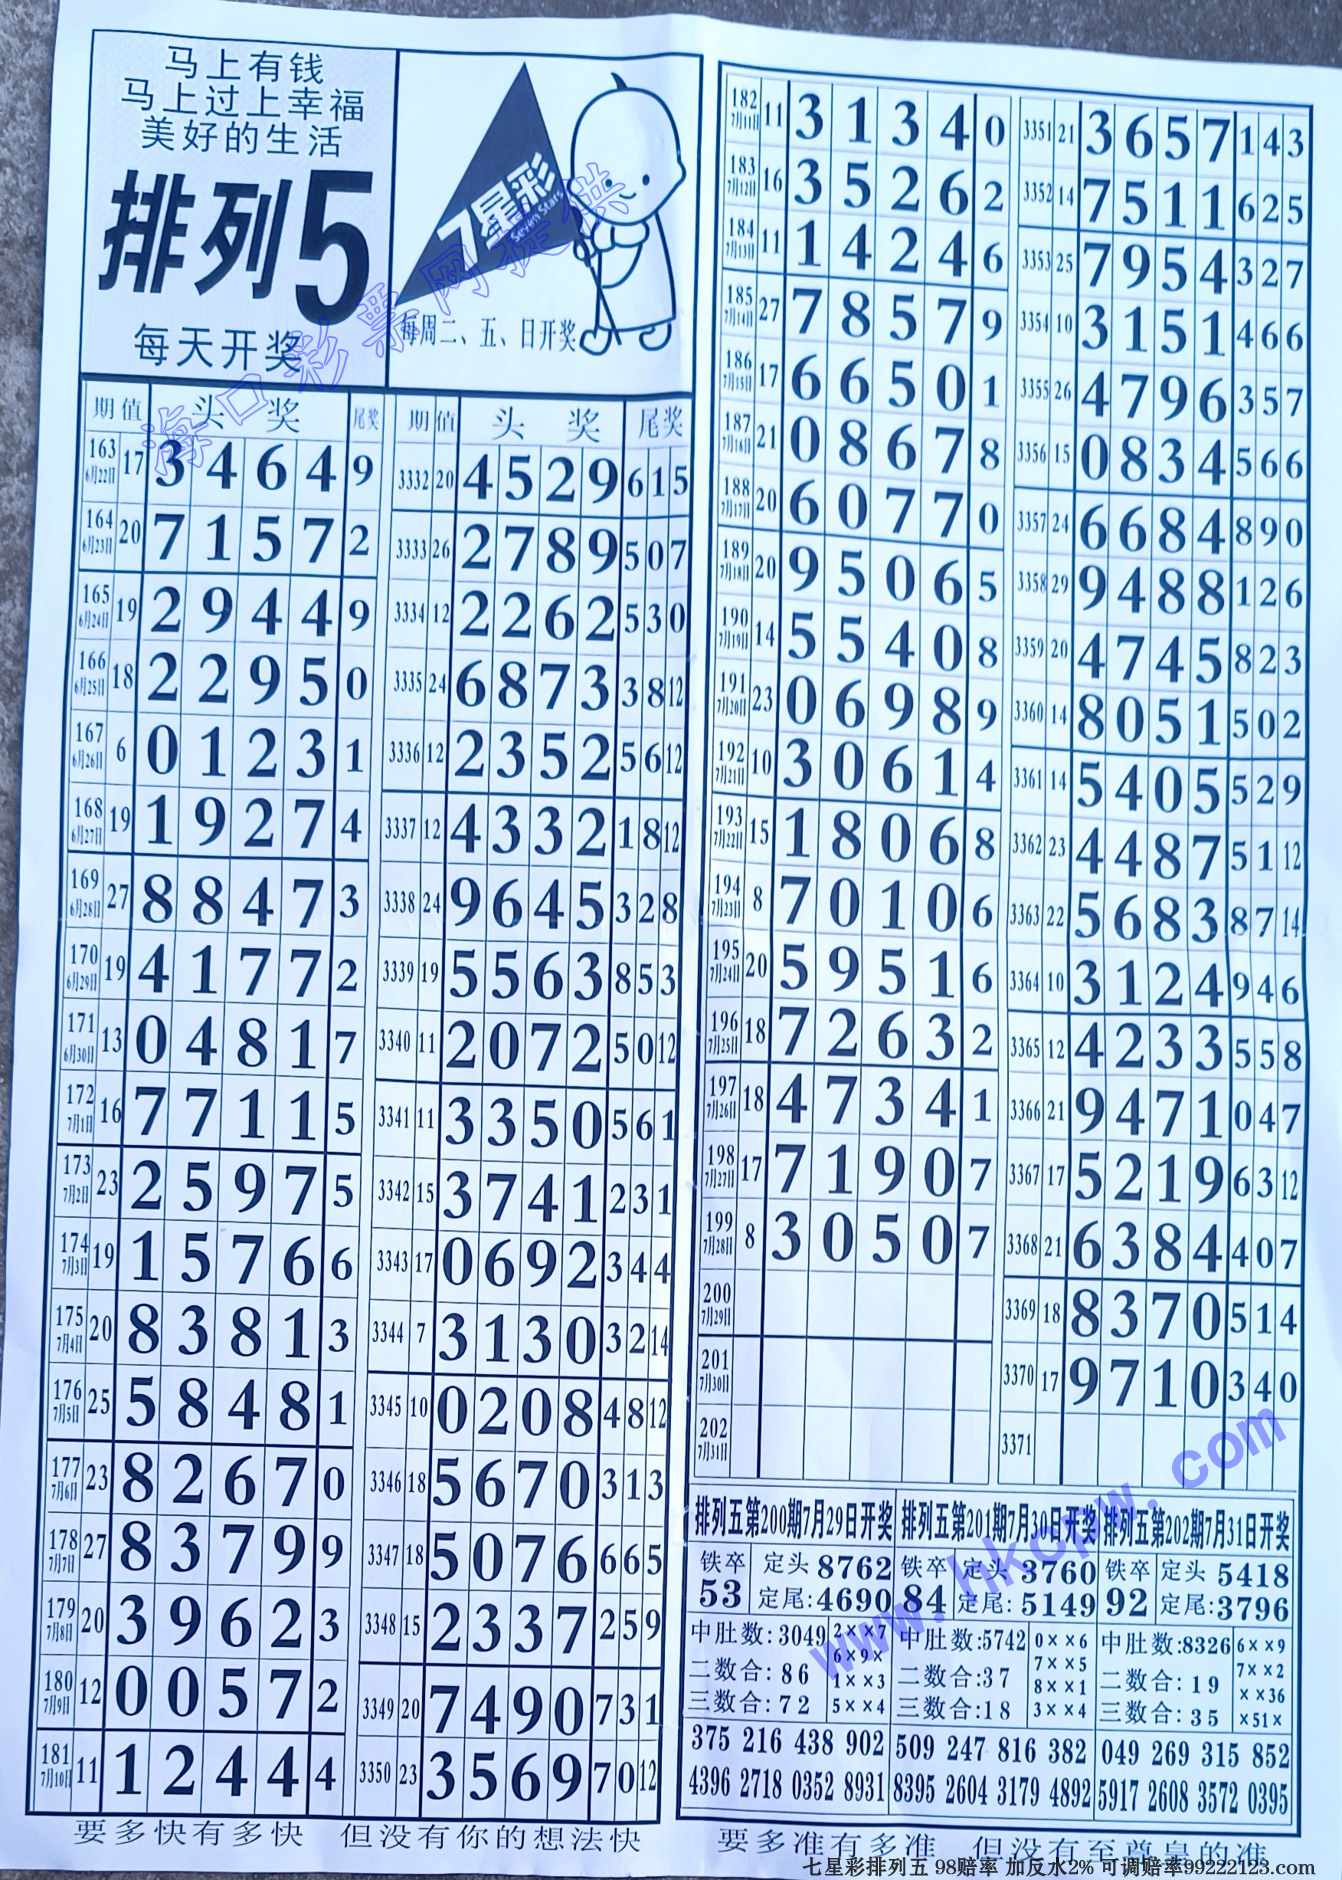 马上有钱
马上过上幸福
美好的生活
排列5
每天开奖
7星彩
Seven Stars
每周二、五、日开奖
海口彩票网提供
期 值 头 奖 尾奖
163 6月22日 17 3 4 6 4 9
164 6月23日 20 7 1 5 7 2
165 6月24日 19 2 9 4 4 9
166 6月25日 18 2 2 9 5 0
167 6月26日 6 0 1 2 3 1
168 6月27日 19 1 9 2 7 4
169 6月28日 27 8 8 4 7 3
170 6月29日 19 4 1 7 7 2
171 6月30日 13 0 4 8 1 7
172 7月1日 16 7 7 1 1 5
173 7月2日 23 2 5 9 7 5
174 7月3日 19 1 5 7 6 6
175 7月4日 20 8 3 8 1 3
176 7月5日 25 5 8 4 8 1
177 7月6日 23 8 2 6 7 0
178 7月7日 27 8 3 7 9 9
179 7月8日 20 3 9 6 2 3
180 7月9日 12 0 0 5 7 2
181 7月10日 11 1 2 4 4 4
期 值 头 奖 尾奖
3332 20 4 5 2 9 6 1 5
3333 26 2 7 8 9 5 0 7
3334 12 2 2 6 2 5 3 0
3335 24 6 8 7 3 3 8 12
3336 12 2 3 5 2 5 6 12
3337 12 4 3 3 2 1 8 12
3338 24 9 6 4 5 3 2 8
3339 19 5 5 6 3 8 5 3
3340 11 2 0 7 2 5 0 12
3341 11 3 3 5 0 5 6 1
3342 15 3 7 4 1 2 3 1
3343 17 0 6 9 2 3 4 4
3344 7 3 1 3 0 3 2 14
3345 10 0 2 0 8 4 8 12
3346 18 5 6 7 0 3 1 3
3347 18 5 0 7 6 6 6 5
3348 15 2 3 3 7 2 5 9
3349 20 7 4 9 0 7 3 1
3350 23 3 5 6 9 7 0 12
要多快有多快 但没有你的想法快
182 7月11日 11 3 1 3 4 0
183 7月12日 16 3 5 2 6 2
184 7月13日 11 1 4 2 4 6
185 7月14日 27 7 8 5 7 9
186 7月15日 17 6 6 5 0 1
187 7月16日 21 0 8 6 7 8
188 7月17日 20 6 0 7 7 0
189 7月18日 20 9 5 0 6 5
190 7月19日 14 5 5 4 0 8
191 7月20日 23 0 6 9 8 9
192 7月21日 10 3 0 6 1 4
193 7月22日 15 1 8 0 6 8
194 7月23日 8 7 0 1 0 6
195 7月24日 20 5 9 5 1 6
196 7月25日 18 7 2 6 3 2
197 7月26日 18 4 7 3 4 1
198 7月27日 17 7 1 9 0 7
199 7月28日 8 3 0 5 0 7
200 7月29日
201 7月30日
202 7月31日
3351 21 3 6 5 7 1 4 3
3352 14 7 5 1 1 6 2 5
3353 25 7 9 5 4 3 2 7
3354 10 3 1 5 1 4 6 6
3355 26 4 7 9 6 3 5 7
3356 15 0 8 3 4 5 6 6
3357 24 6 6 8 4 8 9 0
3358 29 9 4 8 8 1 2 6
3359 20 4 7 4 5 8 2 3
3360 14 8 0 5 1 5 0 2
3361 14 5 4 0 5 5 2 9
3362 23 4 4 8 7 5 1 12
3363 22 5 6 8 3 8 7 14
3364 10 3 1 2 4 9 4 6
3365 12 4 2 3 3 5 5 8
3366 21 9 4 7 1 0 4 7
3367 17 5 2 1 9 6 3 12
3368 21 6 3 8 4 4 0 7
3369 18 8 3 7 0 5 1 4
3370 17 9 7 1 0 3 4 0
3371
排列五第200期7月29日开奖 排列五第201期7月30日开奖 排列五第202期7月31日开奖
铁卒 定头 8762 铁卒 定头 3760 铁卒 定头 5418
53 定尾:4690 84 定尾:5149 92 定尾:3796
中肚数:3049 2××7 中肚数:5742 0××6 中肚数:8326 6××9
6×9× 7××5 7××2
二数合:86 1××3 二数合:37 8××1 二数合:19 ××36
三数合:72 5××4 三数合:18 3××4 三数合:35 ×51×
375 216 438 902 509 247 816 382 049 269 315 852
4396 2718 0352 8931 8395 2604 3179 4892 5917 2608 3572 0395
要多准有多准 但没有至尊皇的准
www.hkcpw.com
七星彩排列五 98赔率 加反水2% 可调赔率99222123.com